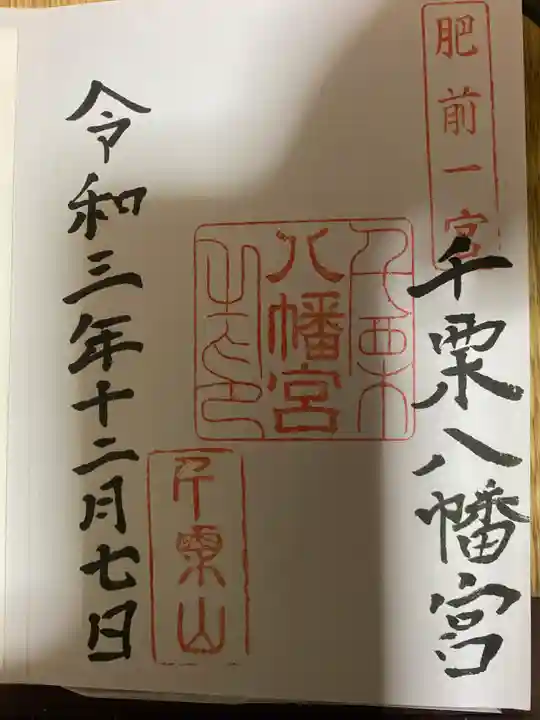 肥前一宮
千栗八幡宮
千栗
八幡宮
之印
千栗山
令和三年十二月七日